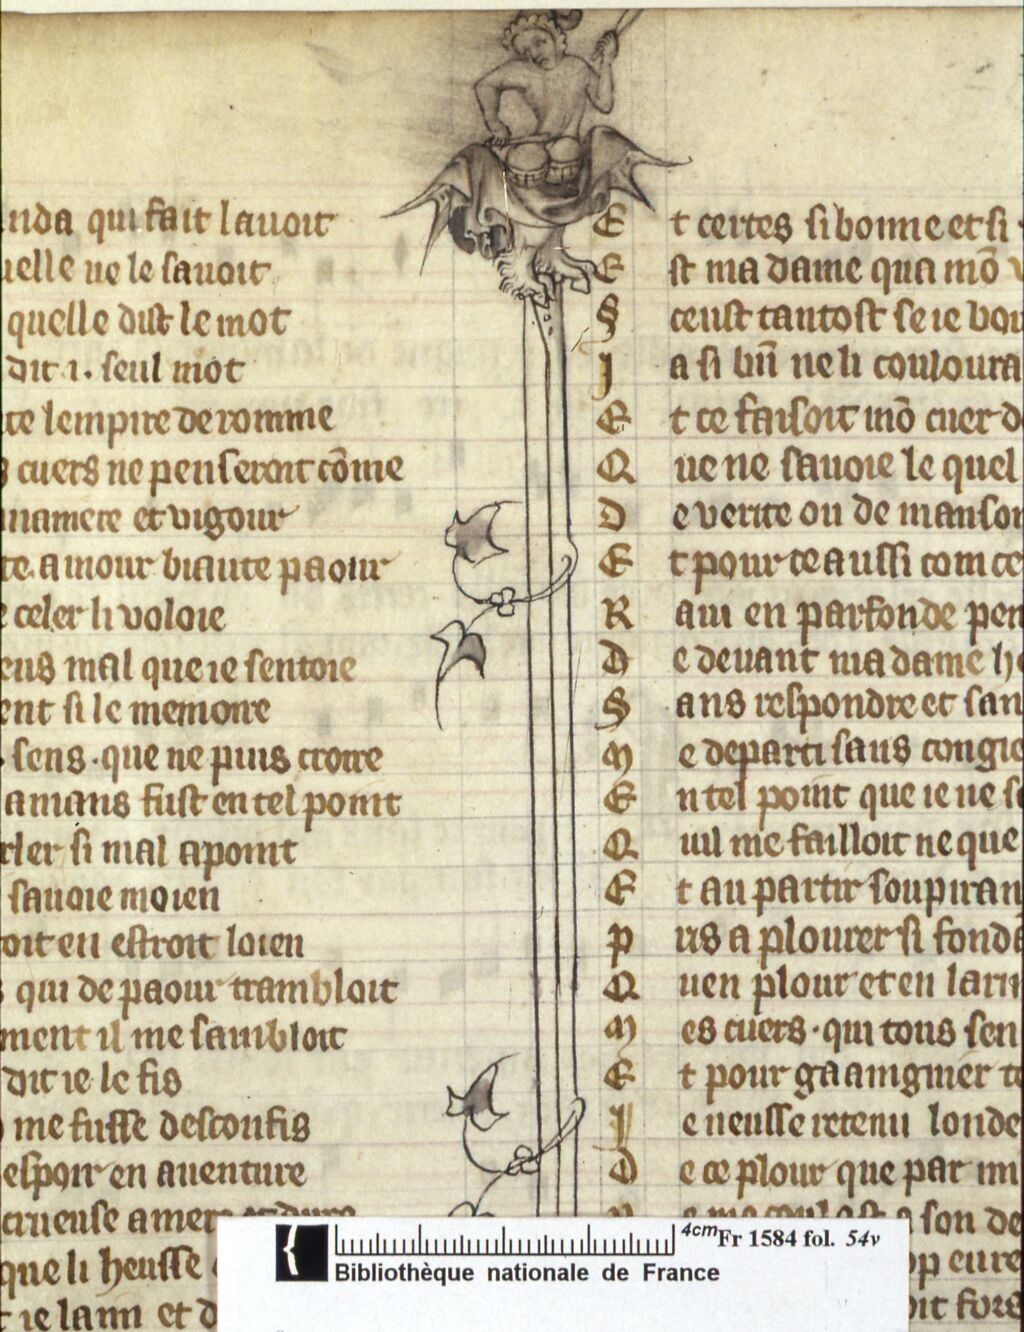 nda qui fait lauoit
uelle ne le sauoit
quelle dist le mot
dit .i. seul mot
ce lempire de romme
s cuers ne penseroit cõme
namere et vigour
te. amour biaute paour
celer li voloie
eus mal que ie sentoie
ent si le memoire
sens . que ne puis croire
amans fust en tel point
rler si mal apoint
sauoie moien
oit en estroit loien
s qui de paour trambloit
ment il me sambloit
dit ie le fis
me fusse desconfis
espoir en auenture
crueuse amere et dure
que li heusse
ie lann et d
E t certes si bonne et si
E st ma dame qua mõ
S ceust tantost se ie vou
J a si bñ ne li couloura
E t ce faisoit mõ cuer d
Q ue ne sauoie le quel
D e verite ou de manson
E t pour ce aussi com ce
R aui en parfonde pen
D e deuant ma dame h
S ans respondre et san
M e departi sans congie
E n tel point que ie ne s
Q uil me failloit ne que
E t au partir soupiran
P us a plourer si fond
Q uen plour et en larm
M es cuers . qui tous sen
E t pour gaaingnier t
J e neusse retenu londe
D e ce plour que par m
son de
op eure
oit fors
4cm Fr 1584 fol. 54v
Bibliothèque nationale de France